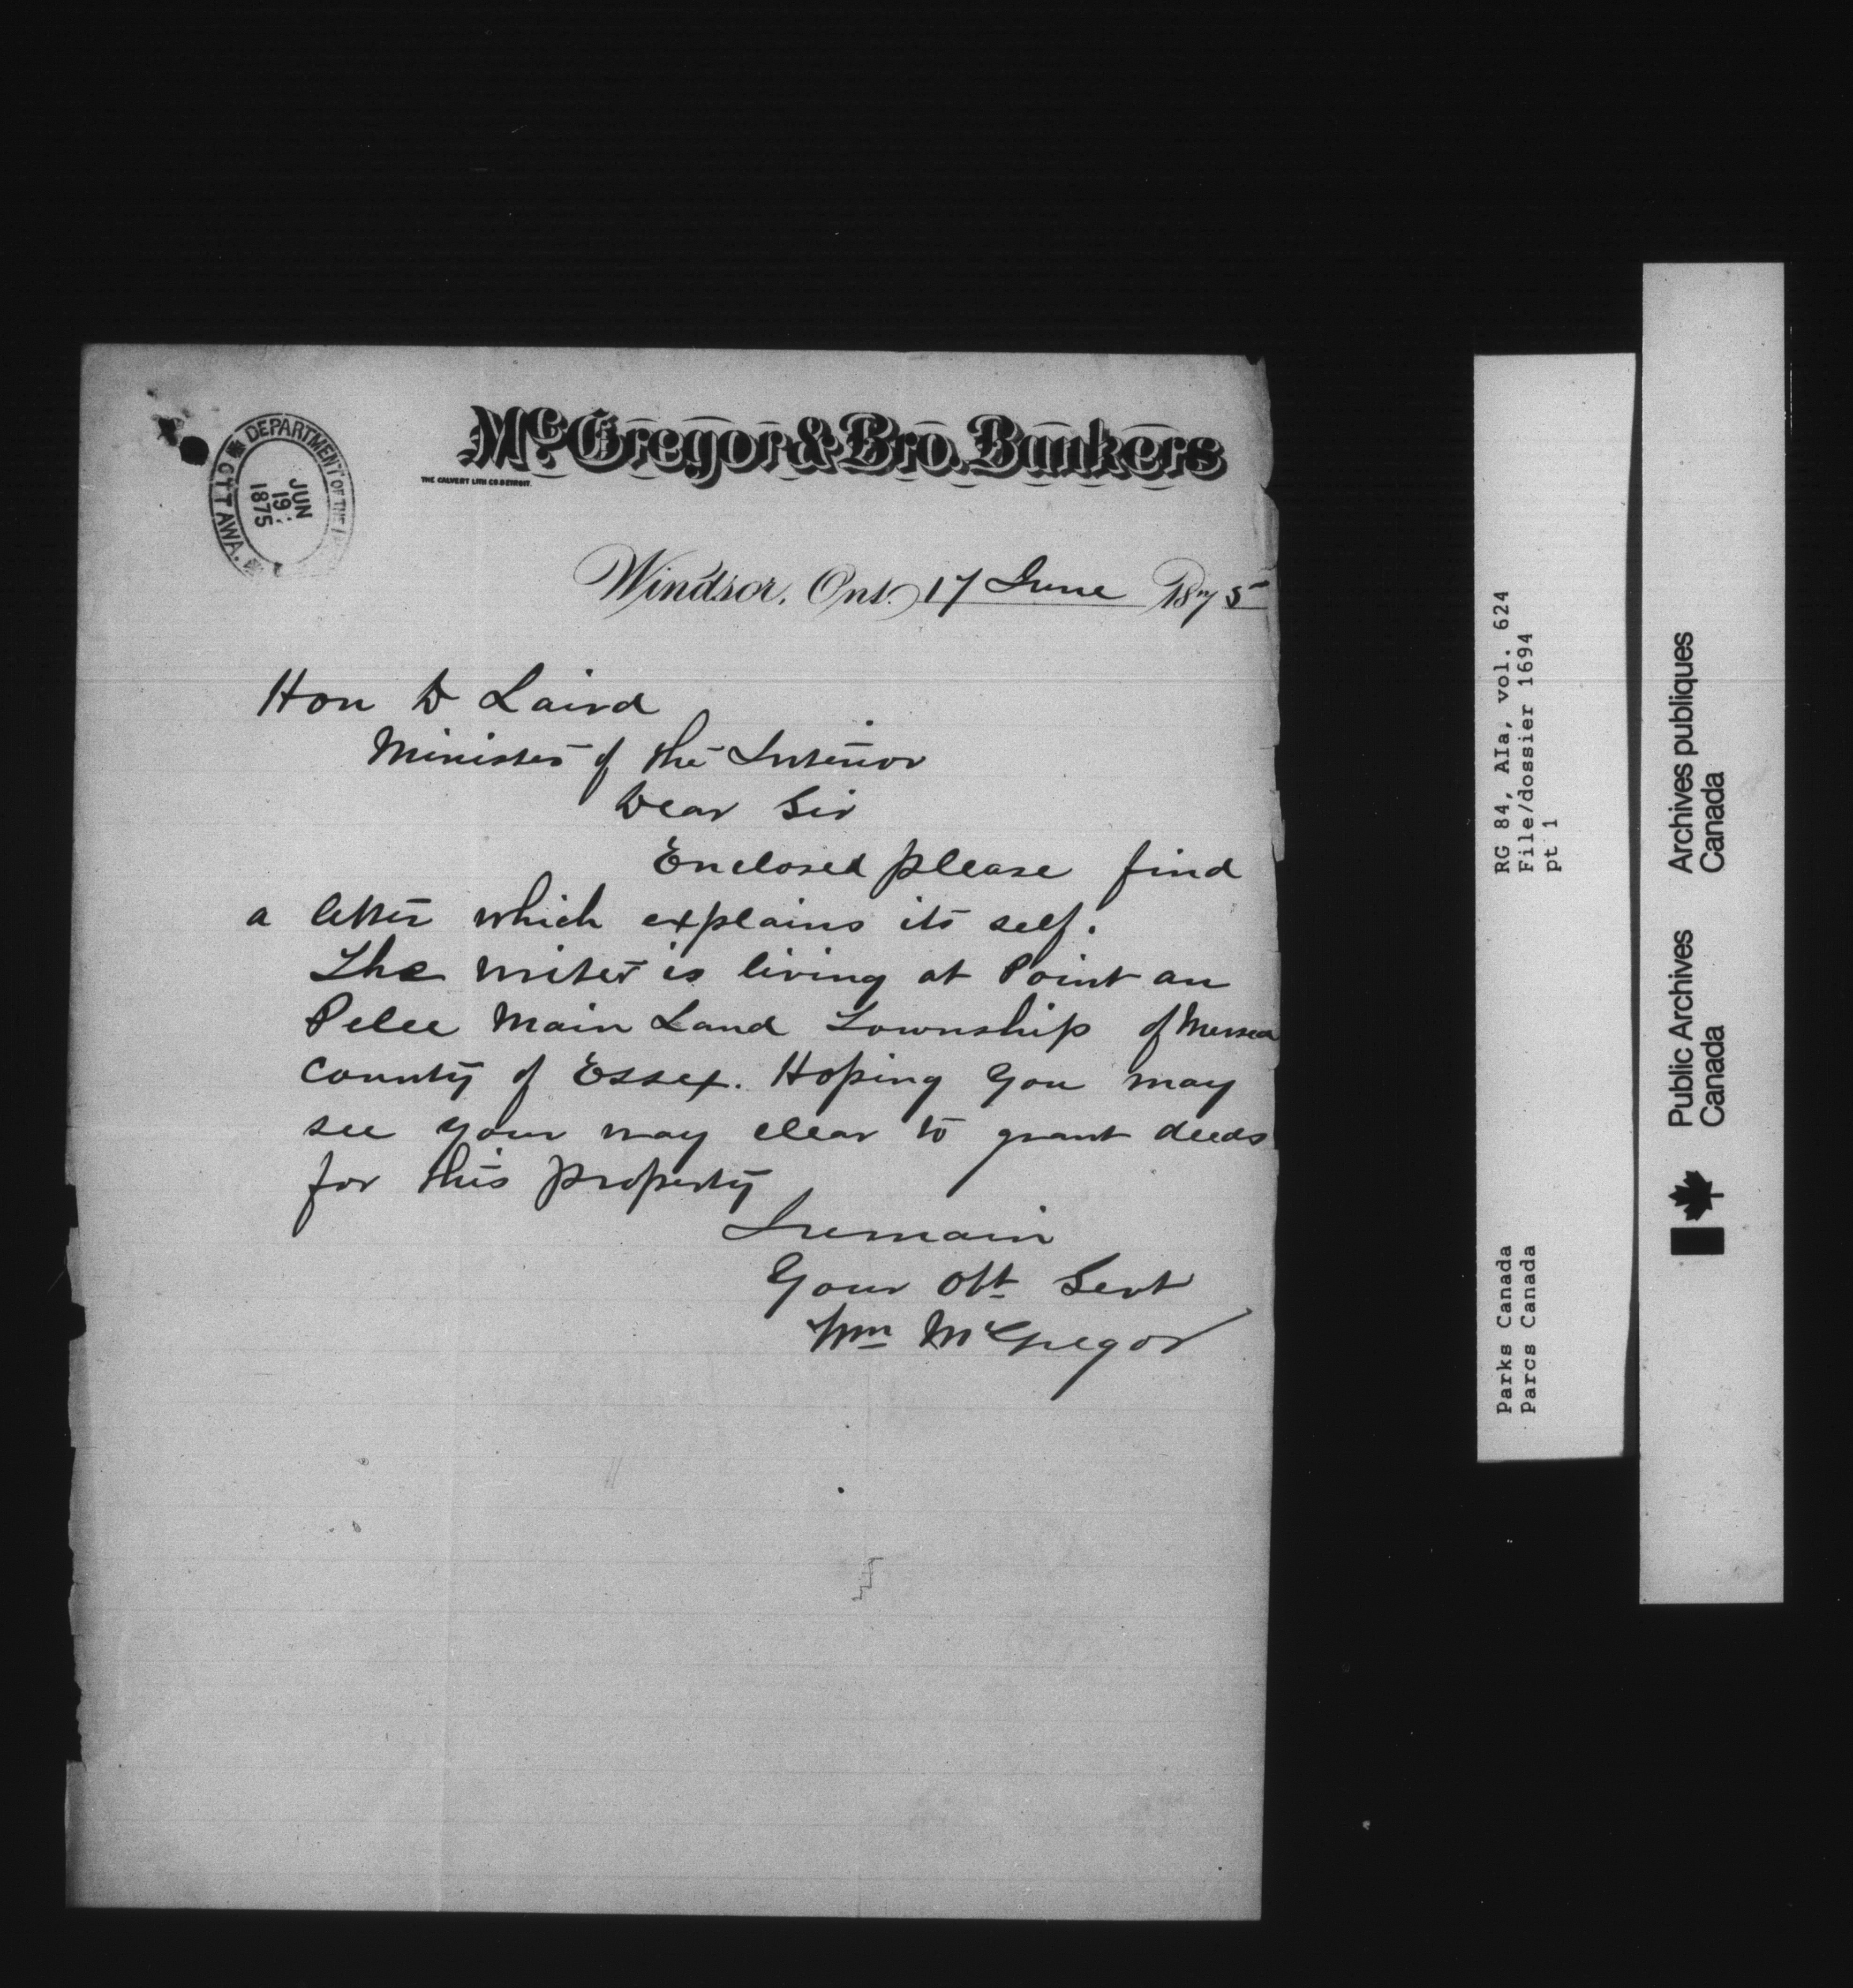 McGregor & Bro. Bankers
THE CALVERT LITH CO DETROIT.
DEPARTMENT OF THE
OTTAWA.
JUN
19
1875
Windsor, Ont. 17 June 1875
Hon D Laird
Minister of the Interior
Dear Sir
Enclosed please find
a letter which explains its self.
The writer is living at Point au
Pelee Main Land Township of Mersea
County of Essex. Hoping you may
see your way clear to grant deeds
for this property
I remain
Your Obt Servt
Wm McGregor
RG 84, AIa, vol. 624
File/dossier 1694
pt 1
Parks Canada
Parcs Canada
Public Archives
Canada
Archives publiques
Canada